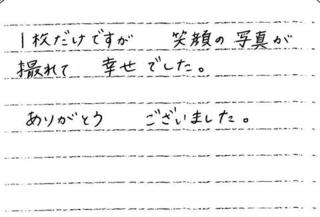 1枚だけですが 笑顔の写真が
撮れて 幸せでした。
ありがとう ございました。